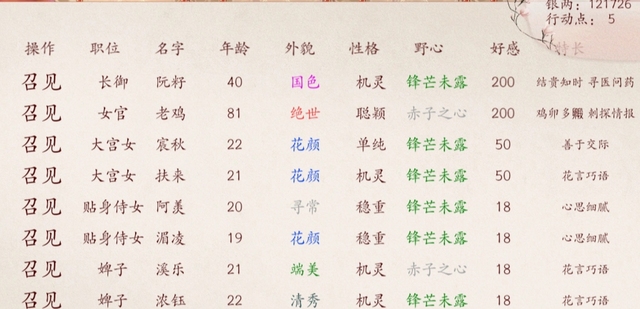 银两：121726
行动点：5
操作 职位 名字 年龄 外貌 性格 野心 好感 特长
召见 长御 阮籽 40 国色 机灵 锋芒未露 200 结贵知时 寻医问药
召见 女官 老鸡 81 绝世 聪颖 赤子之心 200 鸡卵多 刺探情报
召见 大宫女 宸秋 22 花颜 单纯 锋芒未露 50 善于交际
召见 大宫女 扶来 21 花颜 机灵 锋芒未露 50 花言巧语
召见 贴身侍女 阿羡 20 寻常 稳重 锋芒未露 18 心思细腻
召见 贴身侍女 湄凌 19 花颜 稳重 锋芒未露 18 心思细腻
召见 婢子 溪乐 21 端美 机灵 赤子之心 18 花言巧语
召见 婢子 浓钰 22 清秀 机灵 锋芒未露 18 花言巧语